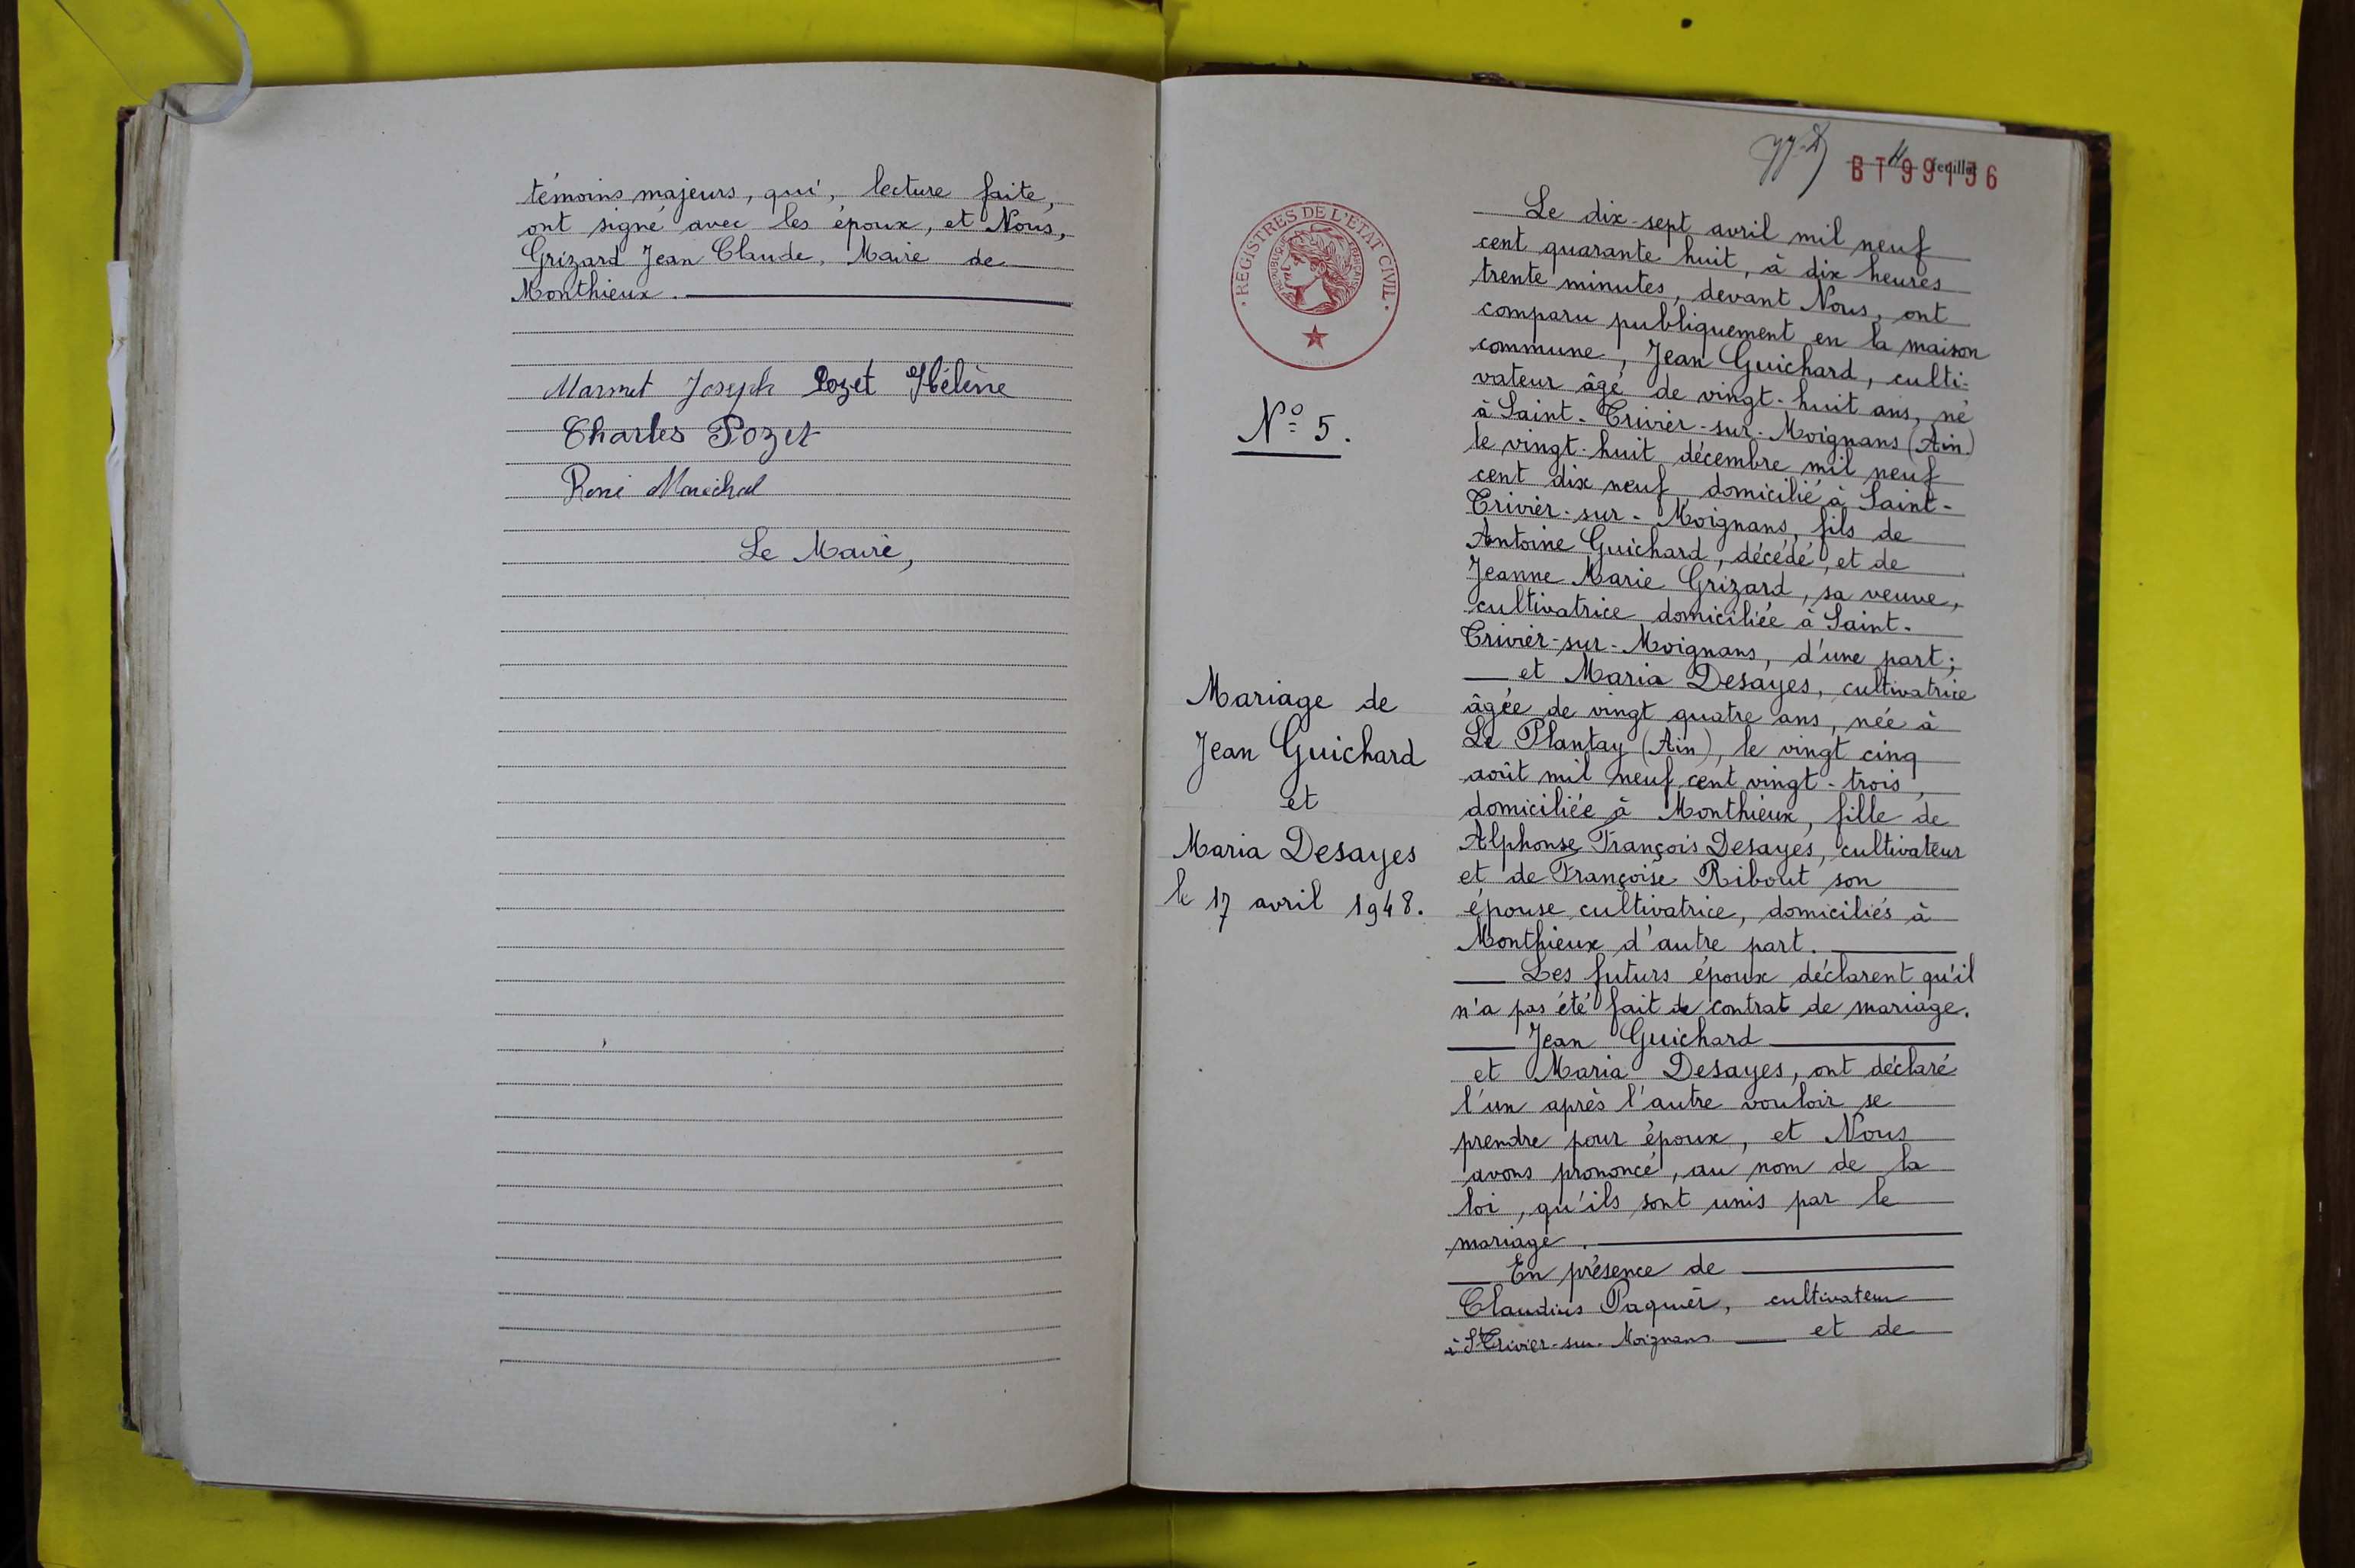 témoins majeurs, qui, lecture faite,
ont signé avec les époux, et Nous,
Grizard Jean Claude, Maire de
Monthieux.
Marmet Joseph Pozet Hélène
Charles Pozet
René Maréchal
Le Maire,
BT 99136
feuillet
REGISTRES DE L'ÉTAT CIVIL
RÉPUBLIQUE FRANÇAISE
N° 5.
Mariage de
Jean Guichard
et
Maria Desayes
le 17 avril 1948.
Le dix-sept avril mil neuf
cent quarante huit, à dix heures
trente minutes, devant Nous, ont
comparu publiquement en la maison
commune, Jean Guichard, culti-
vateur âgé de vingt-huit ans, né
à Saint-Trivier-sur-Moignans (Ain)
le vingt-huit décembre mil neuf
cent dix neuf domicilié à Saint-
Trivier-sur-Moignans, fils de
Antoine Guichard, décédé, et de
Jeanne Marie Grizard, sa veuve,
cultivatrice domiciliée à Saint-
Trivier-sur-Moignans, d'une part;
et Maria Desayes, cultivatrice
âgée de vingt quatre ans, née à
Le Plantay (Ain), le vingt cinq
août mil neuf cent vingt-trois,
domiciliée à Monthieux, fille de
Alphonse François Desayes, cultivateur
et de Françoise Ribout son
épouse cultivatrice, domiciliés à
Monthieux d'autre part.
Les futurs époux déclarent qu'il
n'a pas été fait de contrat de mariage.
Jean Guichard
et Maria Desayes, ont déclaré
l'un après l'autre vouloir se
prendre pour époux, et Nous
avons prononcé, au nom de la
loi, qu'ils sont unis par le
mariage.
En présence de
Claudius Paquier, cultivateur
à St Trivier-sur-Moignans et de